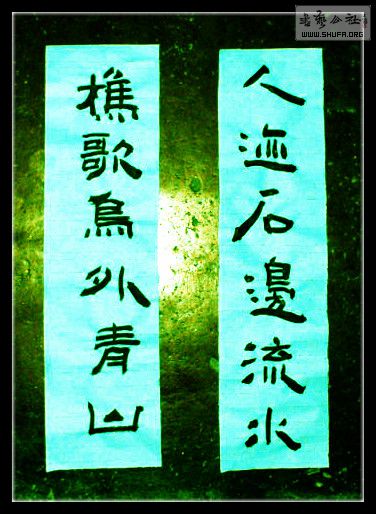 人迹石邊流水
樵歌鳥外青山
書藝公社
WWW.SHUFA.ORG